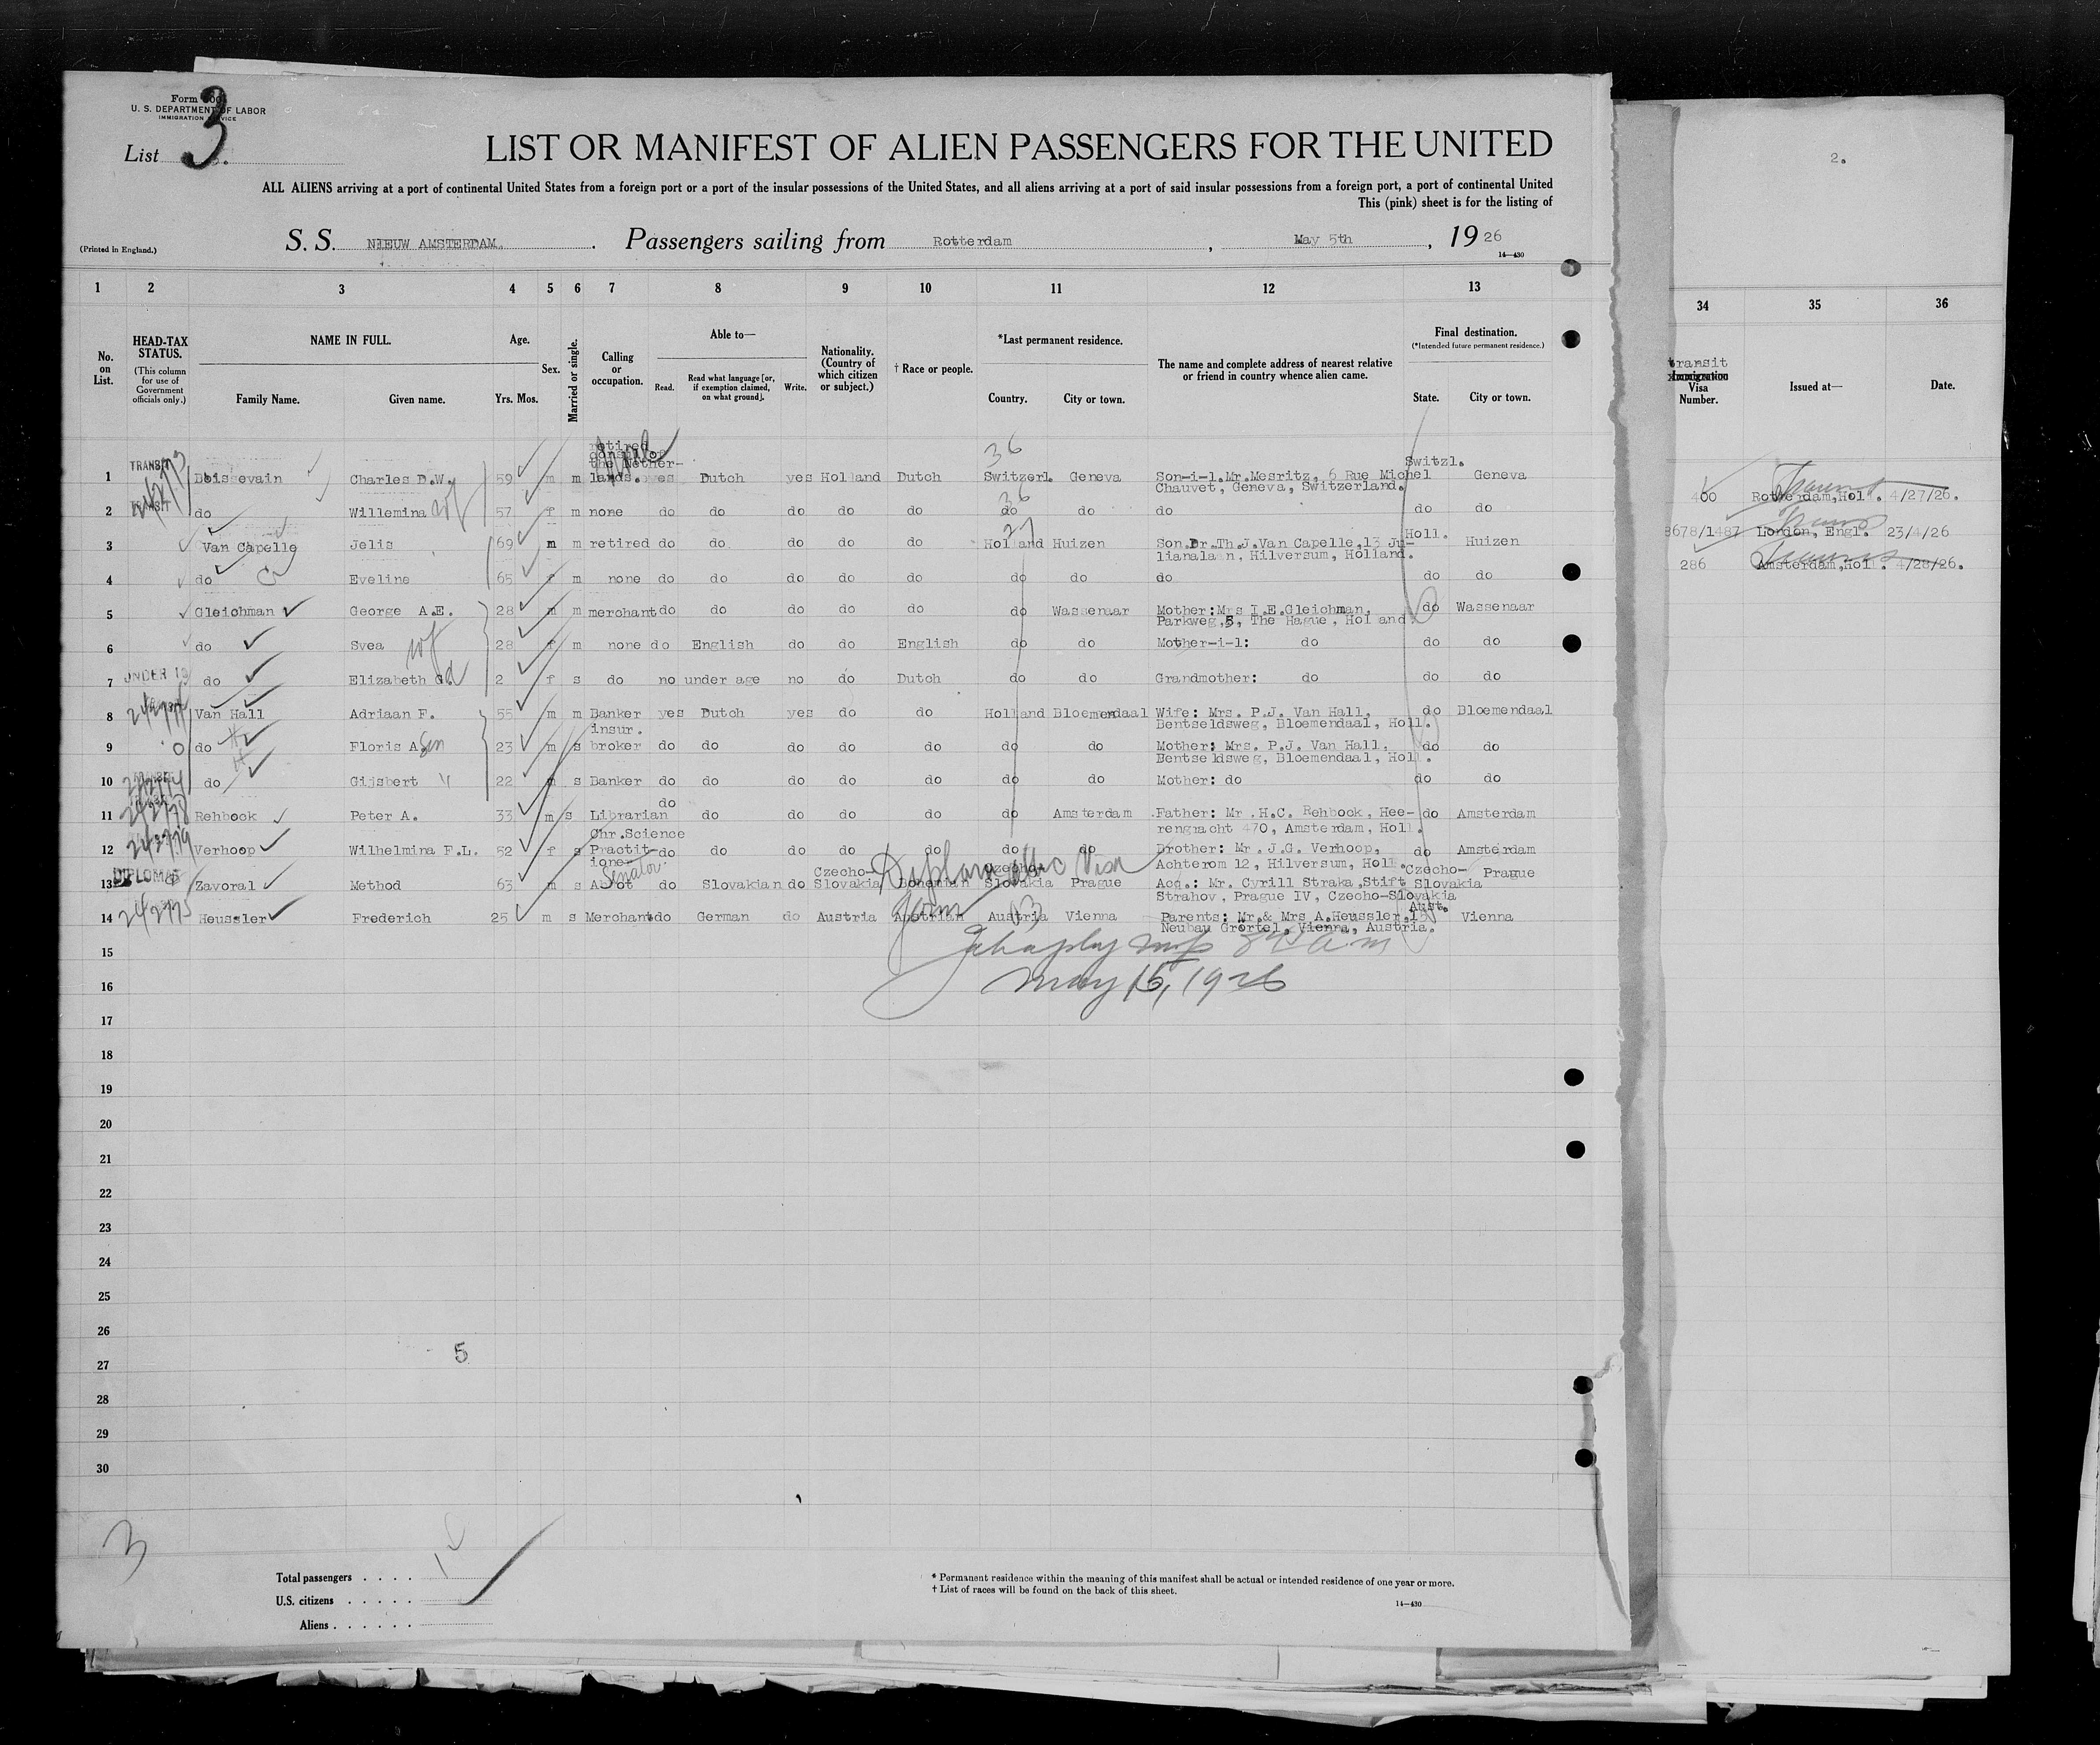 Form 500
U. S. DEPARTMENT OF LABOR
IMMIGRATION SERVICE
List 3.
LIST OR MANIFEST OF ALIEN PASSENGERS FOR THE UNITED
ALL ALIENS arriving at a port of continental United States from a foreign port or a port of the insular possessions of the United States, and all aliens arriving at a port of said insular possessions from a foreign port, a port of continental United
This (pink) sheet is for the listing of
(Printed in England.) S. S. NIEUW AMSTERDAM. Passengers sailing from Rotterdam, May 5th, 1926
14—430
1 2 3 4 5 6 7 8 9 10 11 12 13
No. on List.
HEAD-TAX STATUS. (This column for use of Government officials only.)
NAME IN FULL. Family Name. Given name.
Age. Yrs. Mos.
Sex.
Married or single.
Calling or occupation.
Able to— Read. Read what language [or, if exemption claimed, on what ground]. Write.
Nationality. (Country of which citizen or subject.)
† Race or people.
*Last permanent residence. Country. City or town.
The name and complete address of nearest relative or friend in country whence alien came.
Final destination. (*Intended future permanent residence.) State. City or town.
1 TRANSIT Boissevain Charles D.W. 59 m m retired consul of the Nether-lands. yes Dutch yes Holland Dutch Switzerl. Geneva Son-i-l.Mr.Mesritz, 6 Rue Michel Chauvet, Geneva, Switzerland. Switzl. Geneva
2 TRANSIT do Willemina wf 57 f m none do do do do do do do do do do
3 Van Capelle Jelis 69 m m retired do do do do do Holland Huizen Son.Dr.Th.J.Van Capelle,13 Ju-lianalaan, Hilversum, Holland. Holl. Huizen
4 do Eveline 65 f m none do do do do do do do do do do
5 Gleichman George A.E. 28 m m merchant do do do do do do Wassenaar Mother:Mrs I.E.Gleichman, Parkweg,5, The Hague, Holland. do Wassenaar
6 do Svea wf 28 f m none do English do do English do do Mother-i-l: do do do
7 UNDER 16 do Elizabeth G. d 2 f s do no under age no do Dutch do do Grandmother: do do do
8 Van Hall Adriaan F. 55 m m Banker yes Dutch yes do do Holland Bloemendaal Wife: Mrs. P.J. Van Hall, Bentseldsweg, Bloemendaal, Holl. do Bloemendaal
9 do Floris A. son 23 m s insur. broker do do do do do do do Mother: Mrs. P.J. Van Hall, Bentseldsweg, Bloemendaal, Holl. do do
10 do Gijsbert " 22 m s Banker do do do do do do do Mother: do do do
11 Rehbock Peter A. 33 m s Librarian do do do do do do Amsterdam Father: Mr.H.C. Rehbock, Hee-rengracht 470, Amsterdam, Holl. do Amsterdam
12 Verhoop Wilhelmina F.L. 52 f s Chr.Science Practit-ioner do do do do do do do Brother: Mr. J.G. Verhoop, Achterom 12, Hilversum, Holl. do Amsterdam
13 DIPLOMAT Zavoral Method 63 m s Senator Abbot do Slovakian do Czecho-Slovakia Bohemian Czecho-Slovakia Prague Acq.: Mr. Cyrill Straka,Stift Strahov, Prague IV, Czecho-Slovakia Czecho-Slovakia Prague
Diplomatic Visa
14 Heussler Frederich 25 m s Merchant do German do Austria Austrian Austria Vienna Parents: Mr.& Mrs A.Heussler,15 Neubau Grörtel, Vienna, Austria. Aust. Vienna
May 15, 1926
15
16
17
18
19
20
21
22
23
24
25
26
27
28
29
30
5
3
Total passengers
U.S. citizens
Aliens
* Permanent residence within the meaning of this manifest shall be actual or intended residence of one year or more.
† List of races will be found on the back of this sheet.
14—430
2.
34 35 36
transit
Visa Number. Issued at— Date.
400 Rotterdam,Holl. 4/27/26.
8678/1487 London, Engl. 23/4/26
286 Amsterdam,Holl. 4/28/26.